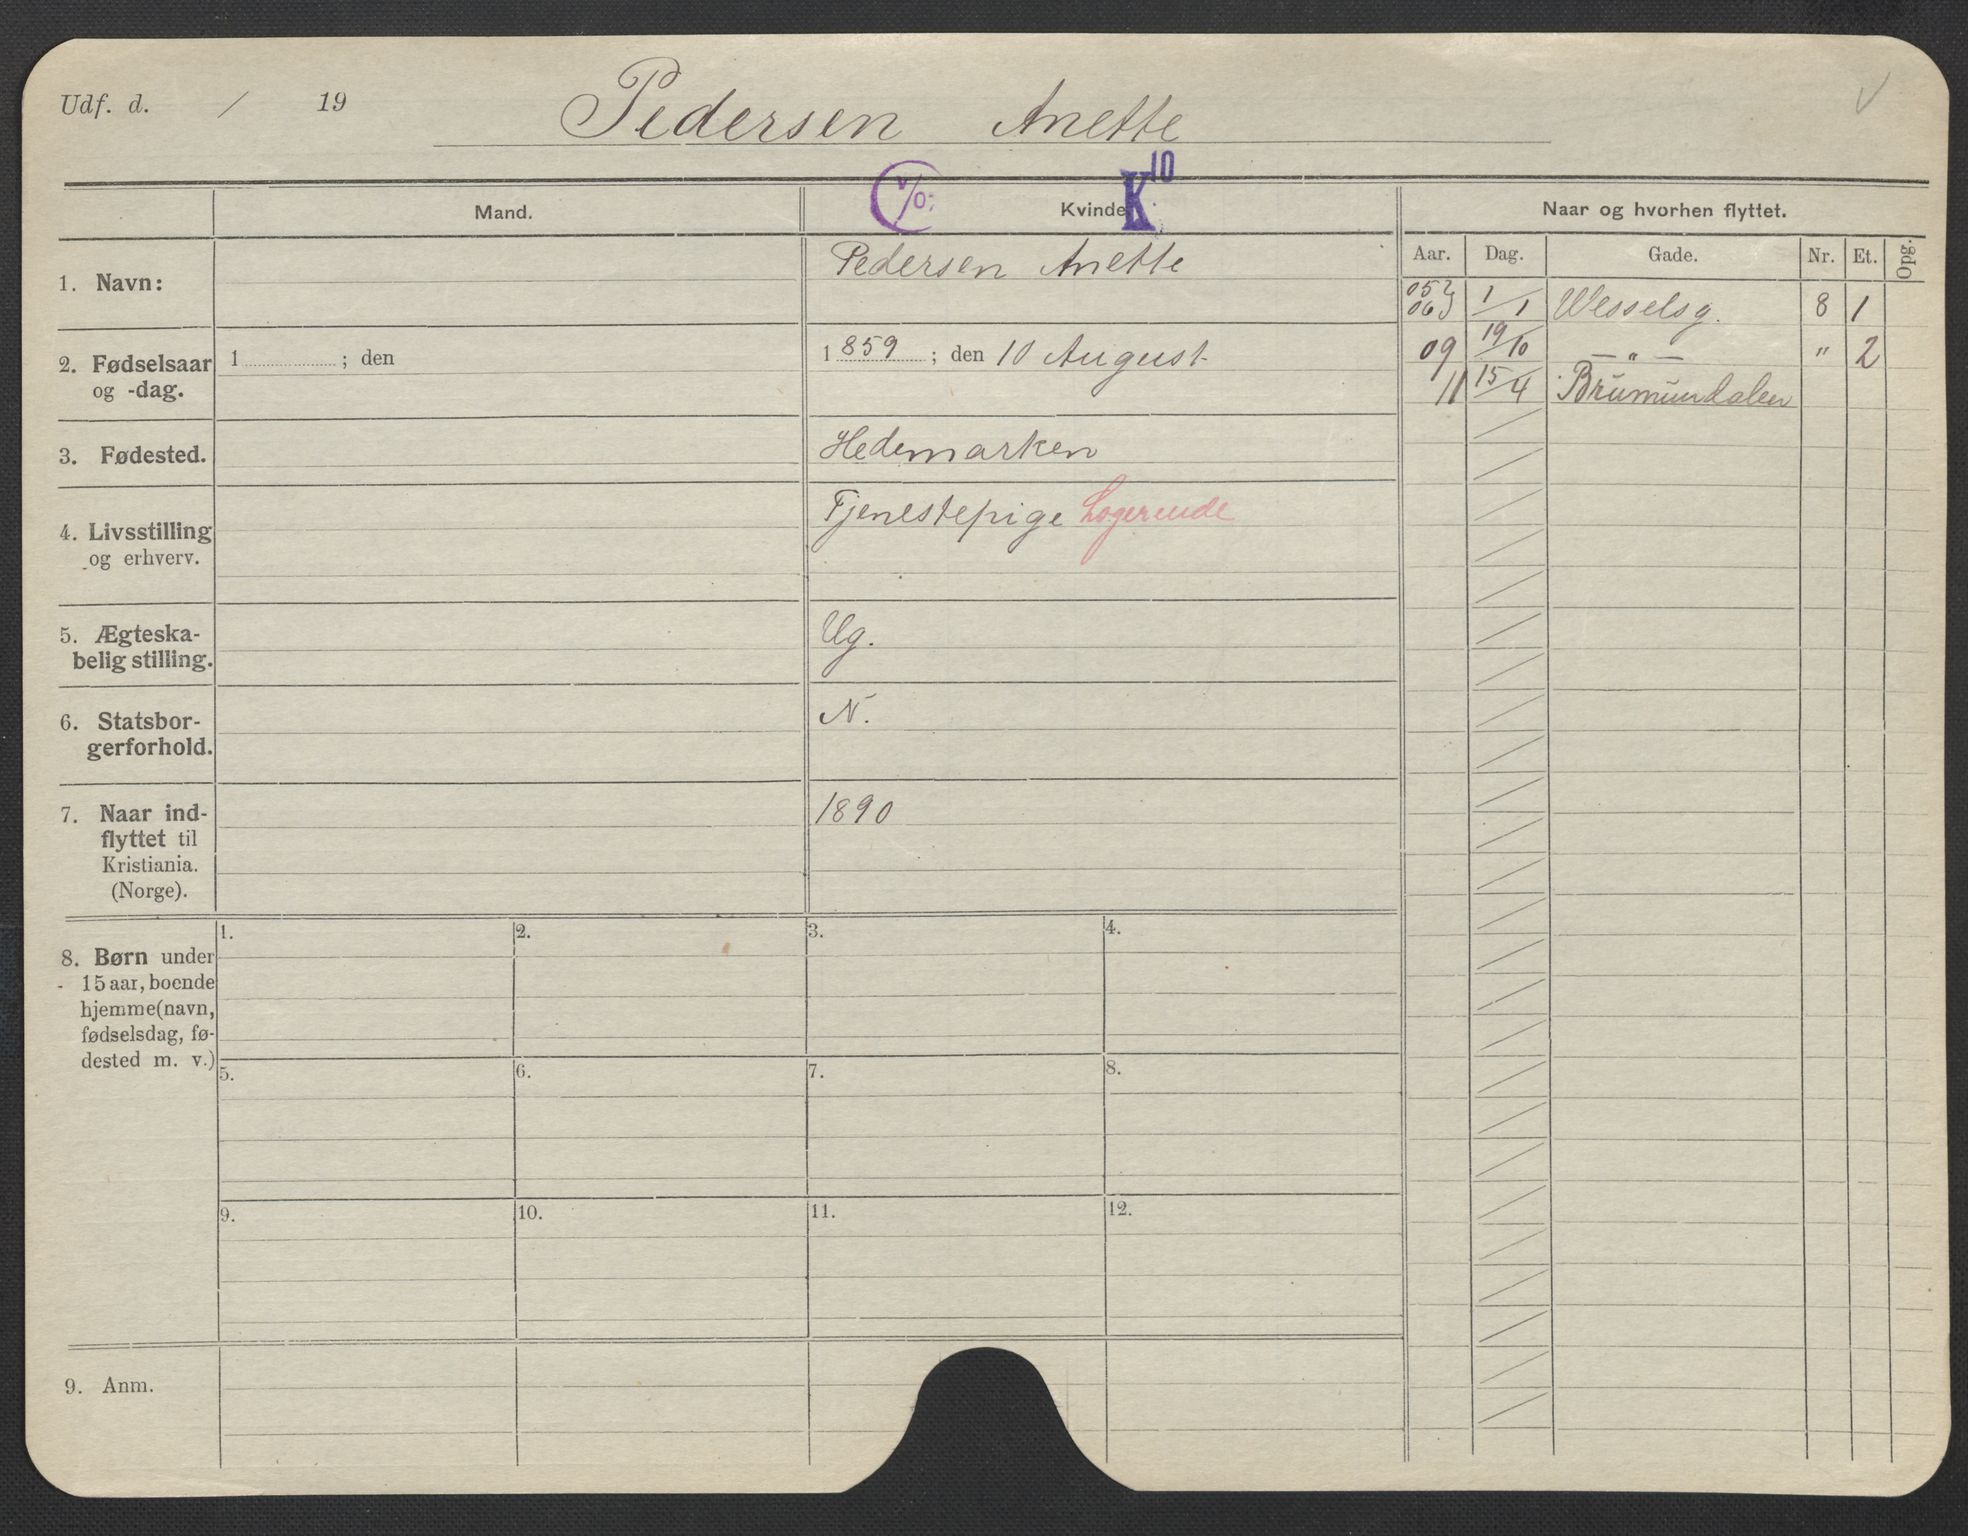 Udf. d. / 19
Pedersen Anette
K 10
Mand.
Kvinde.
Naar og hvorhen flyttet.
Aar. Dag. Gade. Nr. Et. Opg.
1. Navn:
Pedersen Anette
2. Fødselsaar
og -dag.
1 ; den
1 859 ; den 10 August
3. Fødested.
Hedemarken
4. Livsstilling
og erhverv.
Tjenestepige Logerende
5. Ægteska-
belig stilling.
Ug.
6. Statsbor-
gerforhold.
N.
7. Naar ind-
flyttet til
Kristiania.
(Norge).
1890
8. Børn under
15 aar, boende
hjemme (navn,
fødselsdag, fø-
dested m. v.)
1. 2. 3. 4.
5. 6. 7. 8.
9. 10. 11. 12.
9. Anm.
05
06 1/1 Wesselsg. 8 1
09 19/10 — " — " 2
11 15/4 Brumundalen